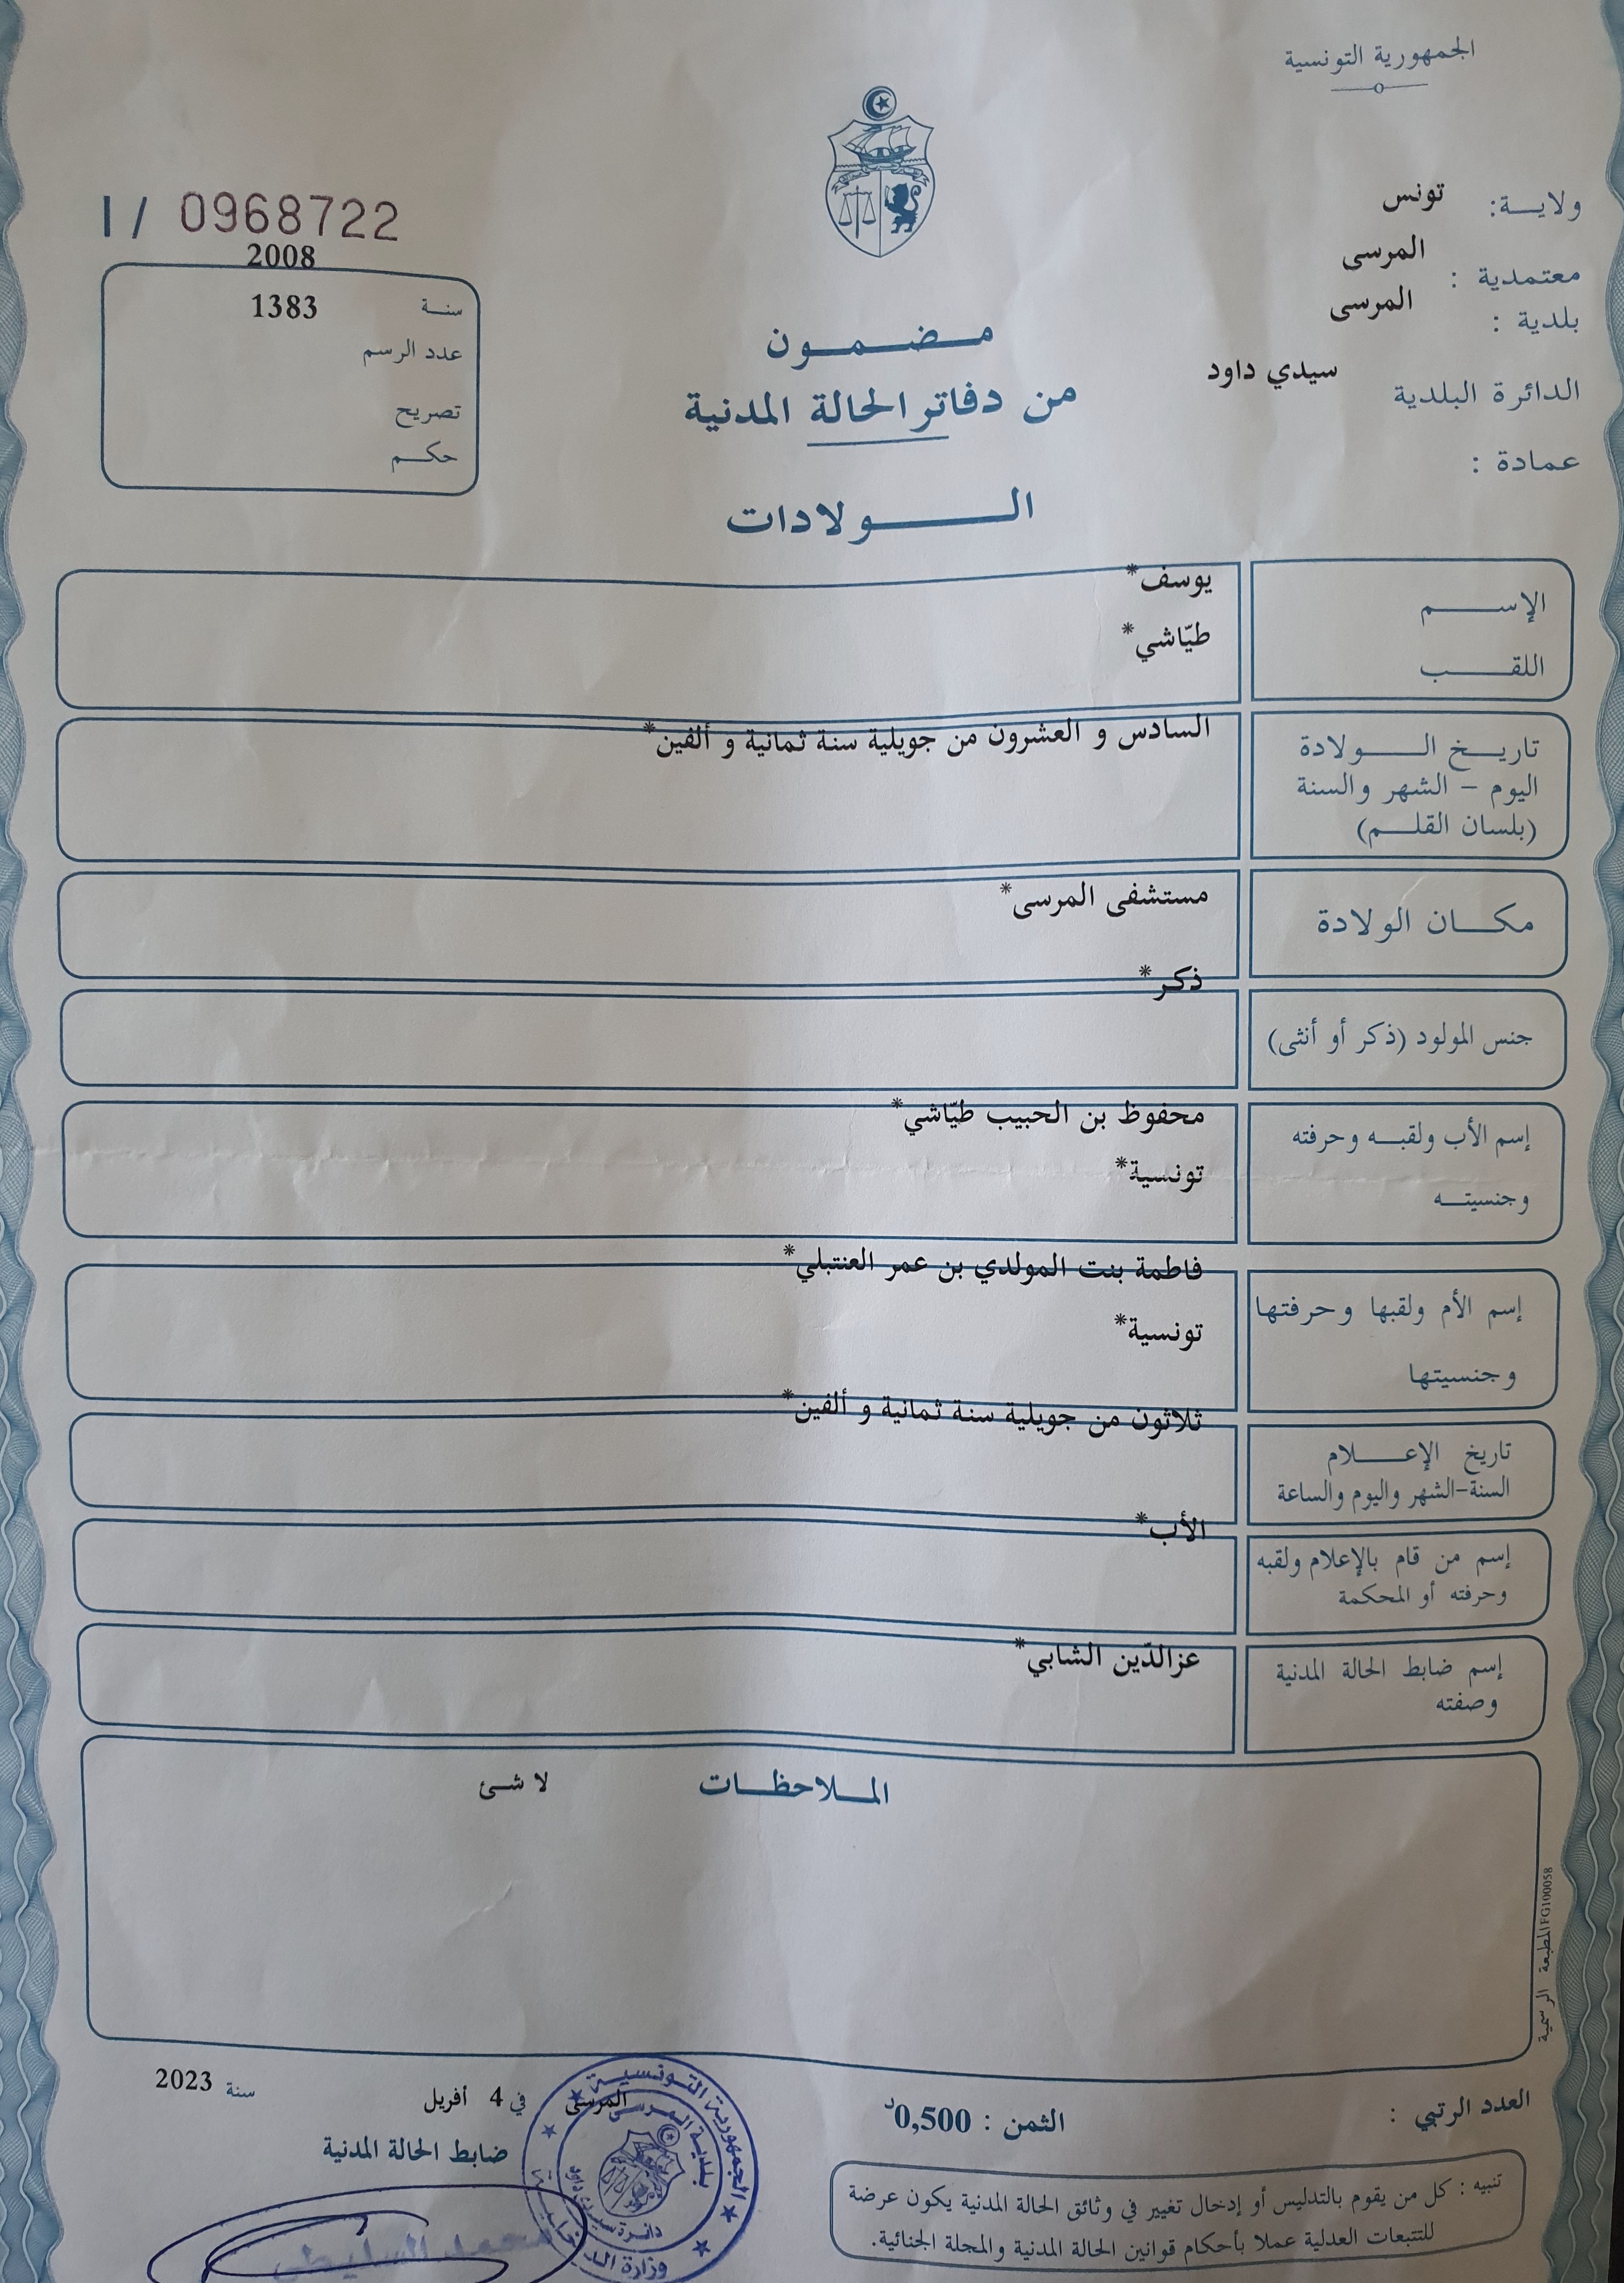 الجمهورية التونسية
ولاية: تونس
معتمدية : المرسى
بلدية : المرسى
الدائرة البلدية سيدي داود
عمادة :
I / 0968722
2008
سنة 1383
عدد الرسم
تصريح
حكم
مضمون
من دفاتر الحالة المدنية
الولادات
الإسم يوسف*
اللقب طيّاشي*
تاريخ الولادة السادس و العشرون من جويلية سنة ثمانية و ألفين*
اليوم - الشهر والسنة
(بلسان القلم)
مكان الولادة مستشفى المرسى*
ذكر*
جنس المولود (ذكر أو أنثى)
إسم الأب ولقبه وحرفته محفوظ بن الحبيب طيّاشي*
وجنسيته تونسية*
فاطمة بنت المولدي بن عمر العنتبلي*
إسم الأم ولقبها وحرفتها
وجنسيتها تونسية*
ثلاثون من جويلية سنة ثمانية و ألفين*
تاريخ الإعلام
السنة-الشهر واليوم والساعة
الأب*
إسم من قام بالإعلام ولقبه
وحرفته أو المحكمة
إسم ضابط الحالة المدنية عزالدّين الشابي*
وصفته
الملاحظات لا شئ
المطبعة الرسمية FG100058
العدد الرتبي :
الثمن : 0,500د
المرسى في 4 أفريل سنة 2023
ضابط الحالة المدنية
الجمهورية التونسية
بلدية المرسى
وزارة الداخلية
محمد السليطي
تنبيه : كل من يقوم بالتدليس أو إدخال تغيير في وثائق الحالة المدنية يكون عرضة
للتتبعات العدلية عملا بأحكام قوانين الحالة المدنية والمجلة الجنائية.